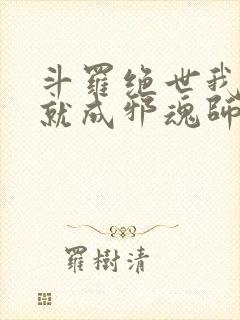 斗羅絕世我
就成邪魂師
羅樹清